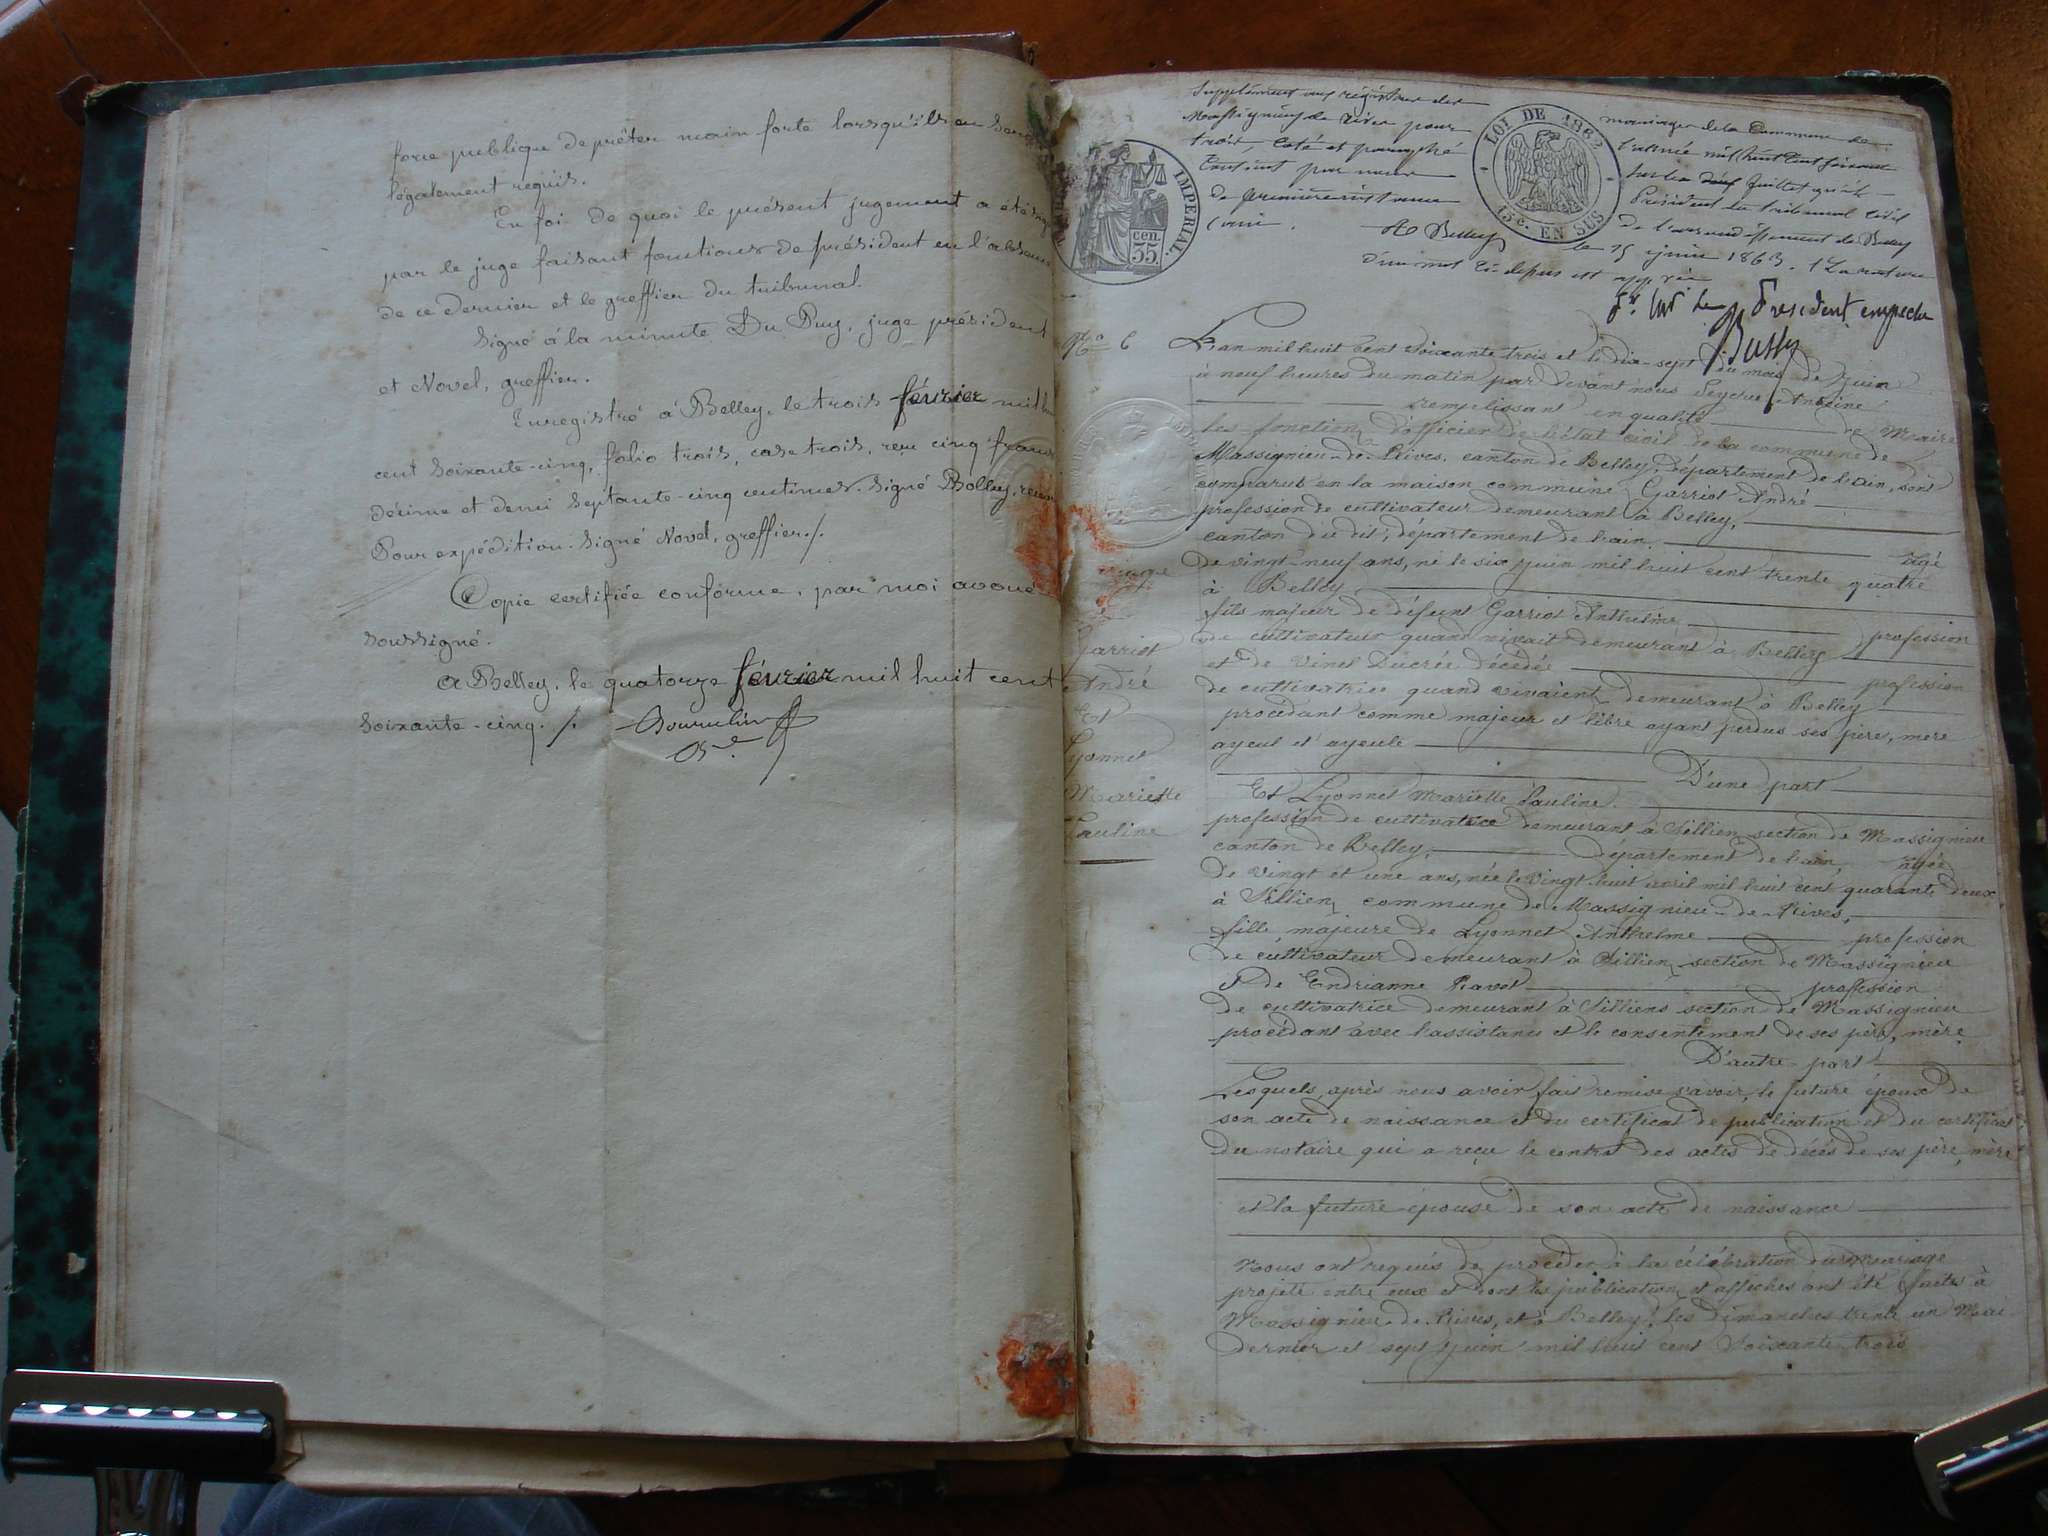 force publique de prêter main forte lorsqu'ils en seront
légalement requis.
En foi de quoi le présent jugement a été signé
par le juge faisant fonctions de président en l'absence
de ce dernier et le greffier du tribunal.
Signé à la minute Du Puy, juge président
et Novel, greffier.
Enregistré à Belley, le trois février mil huit
cent soixante-cinq, folio trois, case trois, reçu cinq francs
décime et demi septante-cinq centimes. Signé Bolley, receveur
Pour expédition. Signé Novel, greffier./.
Copie certifiée conforme, par moi avoué
soussigné.
A Belley, le quatorze février mil huit cent
soixante-cinq. /.
Supplément aux registres des
Massignieu de Rives pour
trois, Coté et paraphé
Contenant par nous
de première instance
l'ain.
mariages de la Commune de
l'année mil huit Cent soixante
Président du tribunal Civil
de l'arrondissement de Belley
A Belley le 15 juin 1863. / La rature
d'un mot Ci-depus est approuvée
Pr. le Président empêché
IMPERIAL.
cen.
35
LOI DE 1862
15c. EN SUS
No 6
L'an mil huit cent soixante trois et le dix-sept du mois de Juin
à neuf heures du matin par devant nous Peycru Antoine
remplissant en qualité de Maire
les fonctions d'officier de l'état civil de la commune de
Massignieu-de-Rives, canton de Belley, département de l'ain, sont
comparus en la maison commune Garriot André
profession de cultivateur demeurant à Belley,
canton du dit, département de l'ain. âgé
de vingt-neuf ans, né le six juin mil huit cent trente quatre
à Belley
fils majeur de défunt Garriot Anthelme profession
de cultivateur quand vivait demeurant à Belley
et de Vinet Ducrée décédée profession
de cultivatrice quand vivaient demeurant à Belley
procédant comme majeur et libre ayant perdus ses père, mère
ayeul et ayeule
D'une part
Et Lyonnet Mariette Pauline.
profession de cultivatrice demeurant à Sillien section de Massignieu
canton de Belley, Département de l'ain, âgée
de vingt et une ans, née le vingt huit avril mil huit cent quarante deux
à Sillien, commune de Massignieu-de-Rives,
fille majeure de Lyonnet Anthelme profession
de cultivateur demeurant à Sillien section de Massignieu
& de Endrianne Ravot profession
de cultivatrice demeurant à Silliens section de Massignieu
procédant avec l'assistance et le consentement de ses père, mère
D'autre part
Lesquels, après nous avoir fait remise savoir, le future époux de
son acte de naissance et du certificat de publication et du certificat
du notaire qui a reçu le contrat des actes de décès de ses père, mère
et la future épouse de son acte de naissance
Nous ont requis de procéder à la célébration du Mariage
projeté entre eux et dont les publications et affiches ont été faites à
Massignieu de Rives, et à Belley, les Dimanches trente un Mai
dernier et sept juin mil huit cent soixante trois
Garriot
André
Et
Lyonnet
Mariette
Pauline